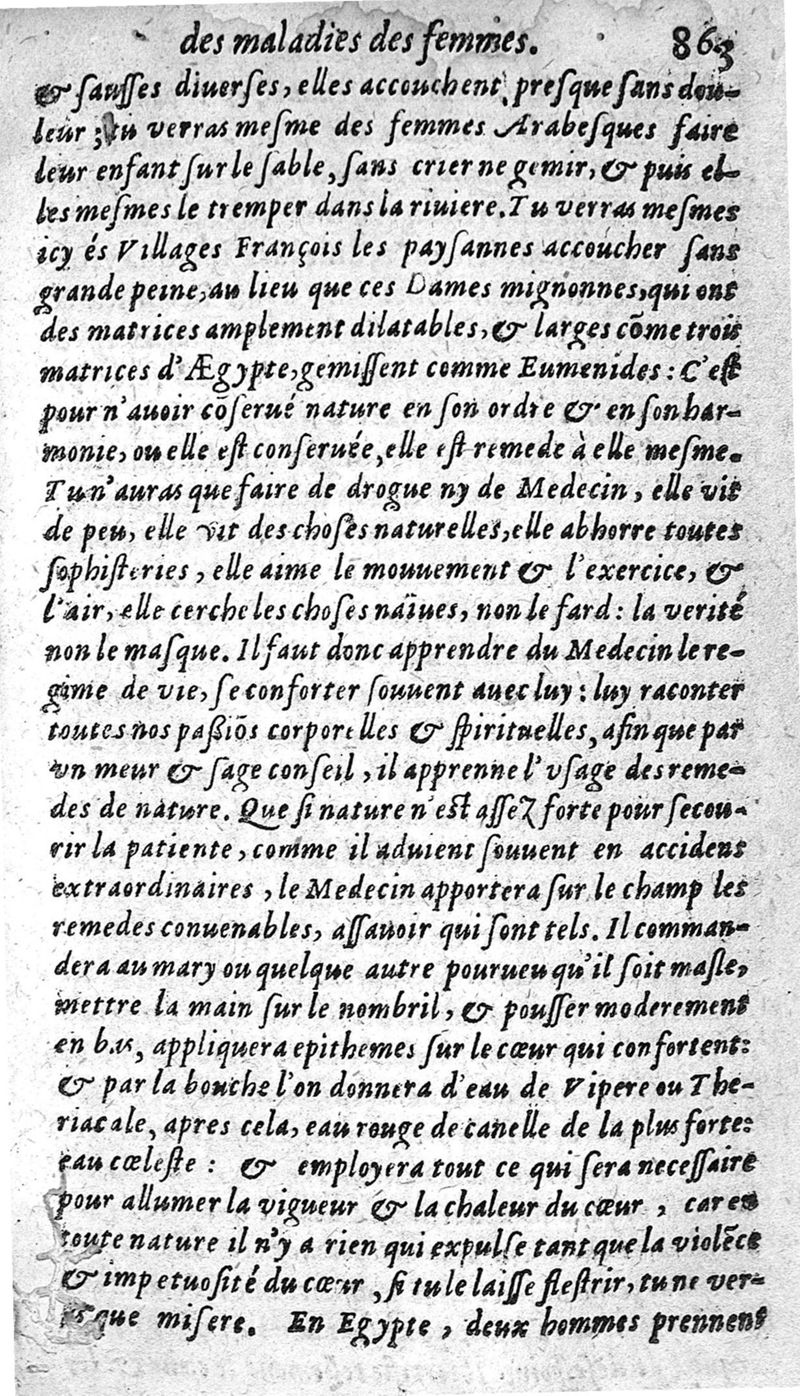 des maladies des femmes. 863
& sausses diuerses, elles accouchent presque sans dou-
leur; tu verras mesme des femmes Arabesques faire
leur enfant sur le sable, sans crier ne gemir, & puis el-
les mesmes le tremper dans la riuiere. Tu verras mesmes
icy és Villages François les paysannes accoucher sans
grande peine, au lieu que ces Dames mignonnes, qui ont
des matrices amplement dilatables, & larges cõme trois
matrices d'Ægypte, gemissent comme Eumenides: C'est
pour n'auoir cõserué nature en son ordre & en son har-
monie, ou elle est conseruée, elle est remede à elle mesme.
Tu n'auras que faire de drogue ny de Medecin, elle vit
de peu, elle vit des choses naturelles, elle abhorre toutes
sophisteries, elle aime le mouuement & l'exercice, &
l'air, elle cerche les choses naïues, non le fard: la verité
non le masque. Il faut donc apprendre du Medecin le re-
gime de vie, se conforter souuent auec luy: luy raconter
toutes nos paßiõs corporelles & spirituelles, afin que par
vn meur & sage conseil, il apprenne l'vsage des reme-
des de nature. Que si nature n'est assez forte pour secou-
rir la patiente, comme il aduient souuent en accidens
extraordinaires, le Medecin apportera sur le champ les
remedes conuenables, assauoir qui sont tels. Il comman-
dera au mary ou quelque autre pourueu qu'il soit masle,
mettre la main sur le nombril, & pousser moderement
en bas, appliquera epithemes sur le cœur qui confortent:
& par la bouche l'on donnera d'eau de Vipere ou The-
riacale, apres cela, eau rouge de canelle de la plus forte:
eau cœleste: & employera tout ce qui sera necessaire
pour allumer la vigueur & la chaleur du cœur, car en
toute nature il n'y a rien qui expulse tant que la violẽce
& impetuosité du cœur, si tu le laisse flestrir, tu ne ver-
ras que misere. En Egypte, deux hommes prennent